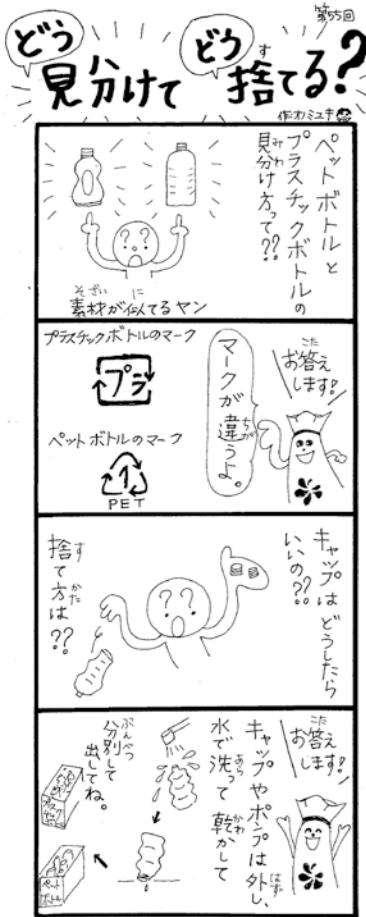 第55回
どう
見分けて
どう
捨てる?
作・オノミユキ
ペットボトルと
プラスチックボトルの
見分け方って??
??
素材が似てるヤン
お答え
します!
マークが違うよ。
プラスチックボトルのマーク
プラ
ペットボトルのマーク
1
PET
キャップは どうしたら
いいの??
??
捨て方は??
お答え
します!
キャップやポンプは外し、
水で洗って 乾かして
分別して
出してね。
ペット
ボトル